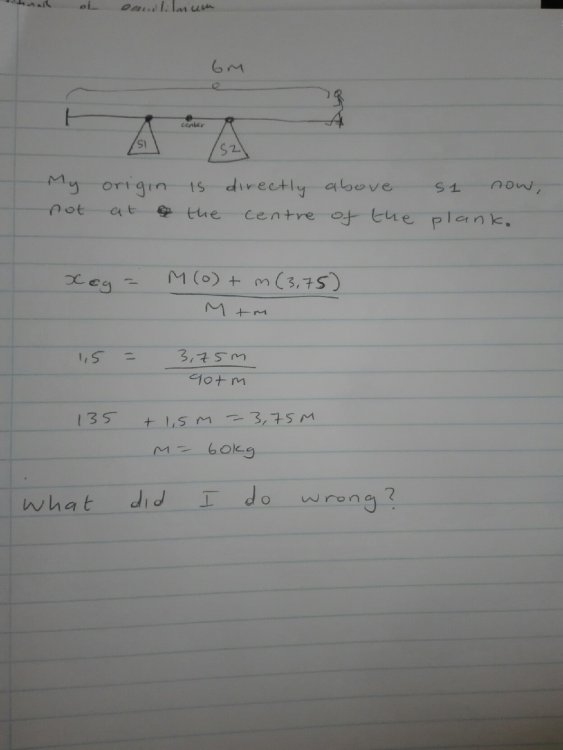 of equilibrium
6M
center
S1
S2
My origin is directly above S1 now,
not at the centre of the plank.
xcg = M(0) + m(3,75)
M + m
1,5 = 3,75m
90+m
135 + 1,5M = 3,75M
M = 60kg
What did I do wrong?